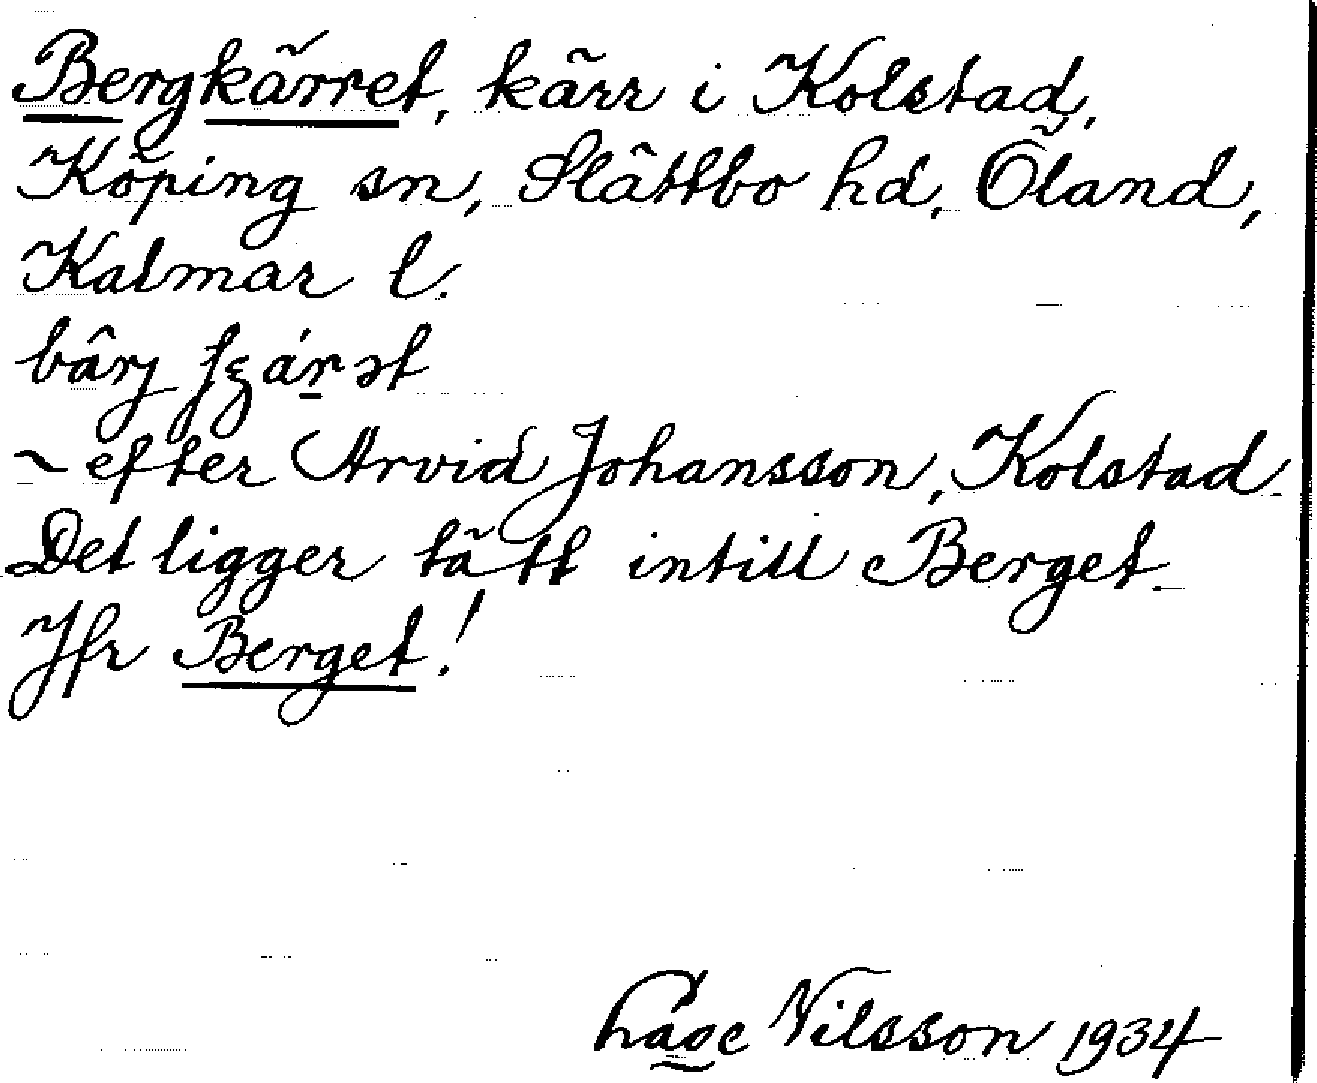 Bergkärret, kärr i Kolstad,
Köping sn, Slättbo hd, Öland,
Kalmar l.
~ efter Arvid Johansson, Kolstad.
Det ligger tätt intill Berget.
Jfr Berget!
Nilsson 1934